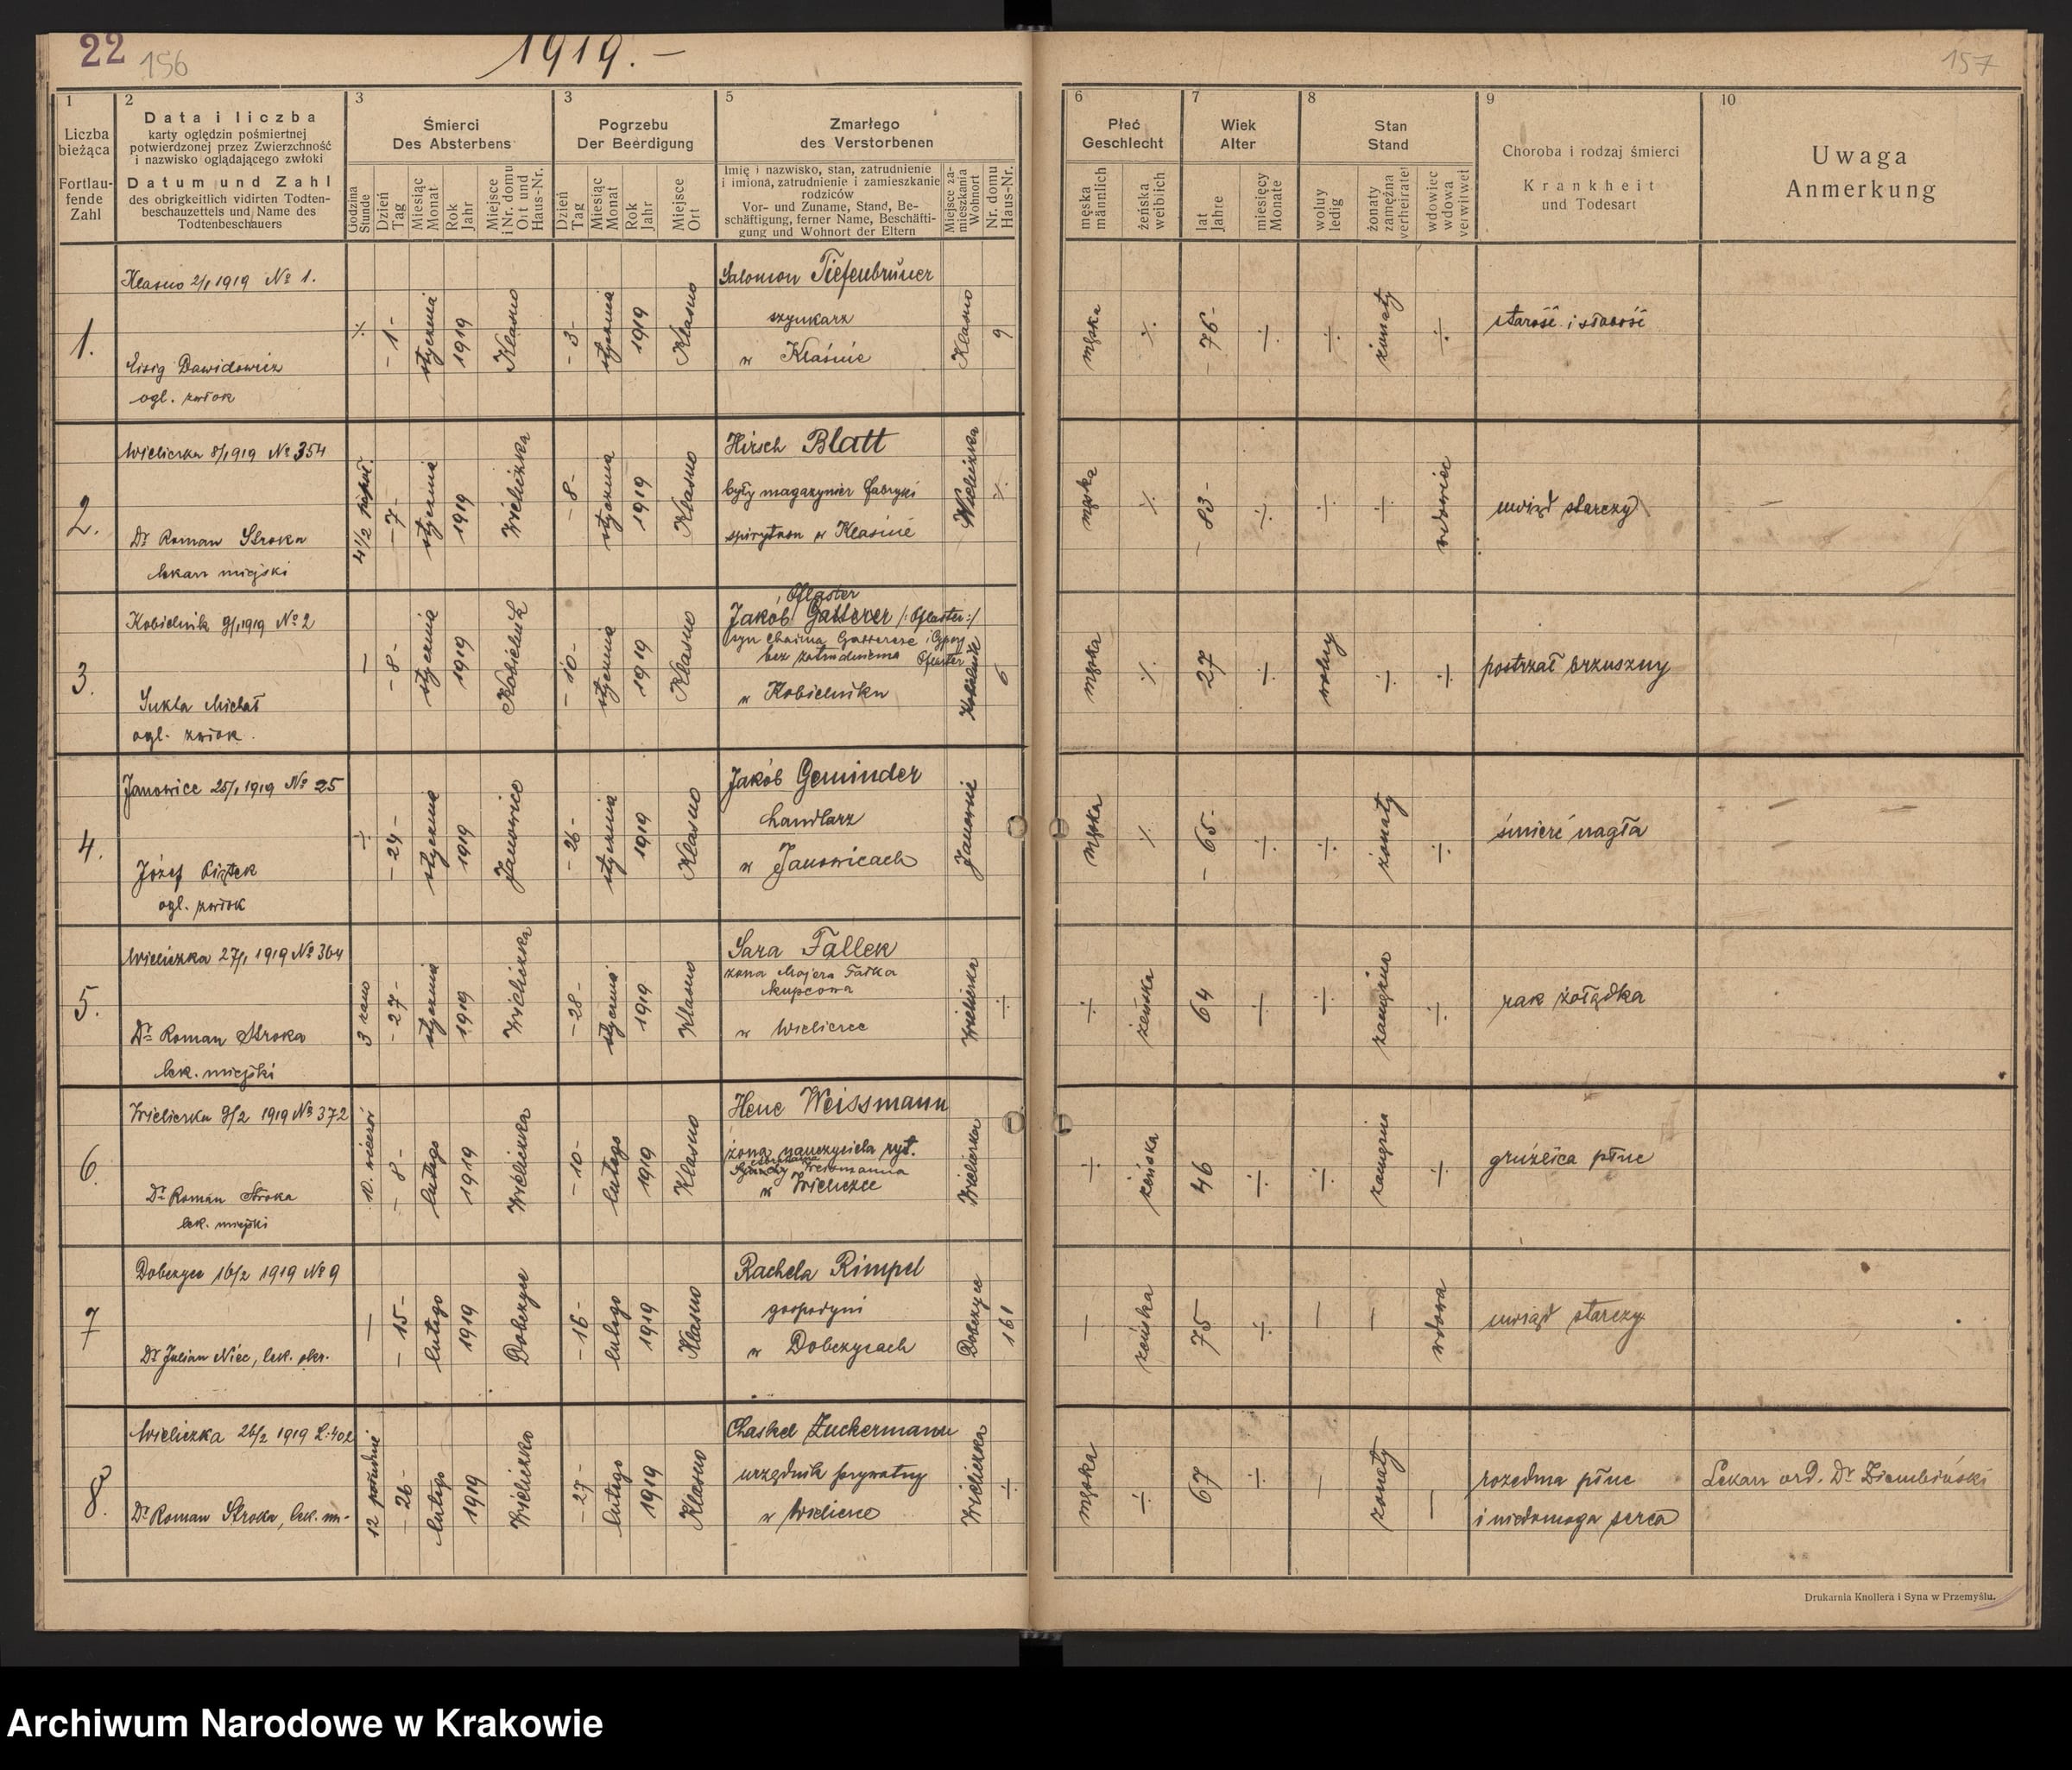 22
156
1919. -
157
1
Liczba bieżąca
Fortlau-fende Zahl
2
Data i liczba
karty oględzin pośmiertnej
potwierdzonej przez Zwierzchność
i nazwisko oglądającego zwłoki
Datum und Zahl
des obrigkeitlich vidirten Todten-
beschauzettels und Name des
Todtenbeschauers
3
Śmierci
Des Absterbens
Godzina Stunde
Dzień Tag
Miesiąc Monat
Rok Jahr
Miejsce i Nr. domu Ort und Haus-Nr.
3
Pogrzebu
Der Beerdigung
Dzień Tag
Miesiąc Monat
Rok Jahr
Miejsce Ort
5
Zmarłego
des Verstorbenen
Imię i nazwisko, stan, zatrudnienie
i imiona, zatrudnienie i zamieszkanie
rodziców
Vor- und Zuname, Stand, Be-
schäftigung, ferner Name, Beschäfti-
gung und Wohnort der Eltern
Miejsce za-mieszkania Wohnort
Nr. domu Haus-Nr.
6
Płeć
Geschlecht
męska männlich
żeńska weiblich
7
Wiek
Alter
lat Jahre
miesięcy Monate
8
Stan
Stand
wolny ledig
żonaty zamężna verheiratet
wdowiec wdowa verwitwet
9
Choroba i rodzaj śmierci
Krankheit
und Todesart
10
Uwaga
Anmerkung
1.
Klasno 2/1 1919 No 1.
Eisig Dawidowicz
ogl. zwłok
- 1 -
stycznia
1919
Klasno
- 3 -
stycznia
1919
Klasno
Salomon Tiefenbrüner
szynkarz
w Klaśnie
Klasno
9
męska
- 76 -
żonaty
starość i słabość
2.
Wieliczka 8/1 1919 No 354
Dr Roman Stroka
lekarz miejski
4 1/2 popoł.
- 7 -
stycznia
1919
Wieliczka
- 8 -
stycznia
1919
Klasno
Hirsch Blatt
były magazynier fabryki
spirytusu w Klaśnie
Wieliczka
męska
- 83 -
wdowiec
uwiąd starczy
3.
Kobielnik 9/1 1919 No 2
Sukta Michał
ogl. zwłok.
- 8 -
stycznia
1919
Kobielnik
- 10 -
stycznia
1919
Klasno
Pflaster
Jakób Gatterer /:Pflaster:/
syn Chaima Gatterera i Cypry
bez zatrudnienia Pflaster
w Kobielniku
Kobielnik
6
męska
27
wolny
postrzał brzuszny
4.
Janowice 25/1 1919 No 25
Józef Piątek
ogl. zwłok
- 24 -
stycznia
1919
Janowice
- 26 -
stycznia
1919
Klasno
Jakób Geminder
handlarz
w Janowicach
Janowice
męska
- 65 -
żonaty
śmierć nagła
5.
Wieliczka 27/1 1919 No 364
Dr Roman Stroka
lek. miejski
3 rano
- 27 -
stycznia
1919
Wieliczka
- 28 -
stycznia
1919
Klasno
Sara Fallek
żona Majera Fałka
kupcowa
w Wieliczce
Wieliczka
żeńska
64
zamężna
rak żołądka
6.
Wieliczka 9/2 1919 No 372
Dr Roman Stroka
lek. miejski
10. wieczór
- 8 -
lutego
1919
Wieliczka
- 10 -
lutego
1919
Klasno
Hene Weissmann
żona nauczyciela ryt.
Weismanna
w Wieliczce
Wieliczka
żeńska
46
zamężna
gruźlica płuc
7
Dobczyce 16/2 1919 No 9
Dr Julian Niec, lek. okr.
- 15 -
lutego
1919
Dobczyce
- 16 -
lutego
1919
Klasno
Rachela Rimpel
gospodyni
w Dobczycach
Dobczyce
161
żeńska
75
wdowa
uwiąd starczy
8.
Wieliczka 26/2 1919 L: 402
Dr Roman Stroka, lek. m-
12 południe
- 26 -
lutego
1919
Wieliczka
- 27 -
lutego
1919
Klasno
Chaskel Zuckermann
urzędnik prywatny
w Wieliczce
Wieliczka
męska
67
żonaty
rozedma płuc
i niedomoga serca
Lekarz ord. Dr Ziembiński
Drukarnia Knollera i Syna w Przemyślu.
Archiwum Narodowe w Krakowie